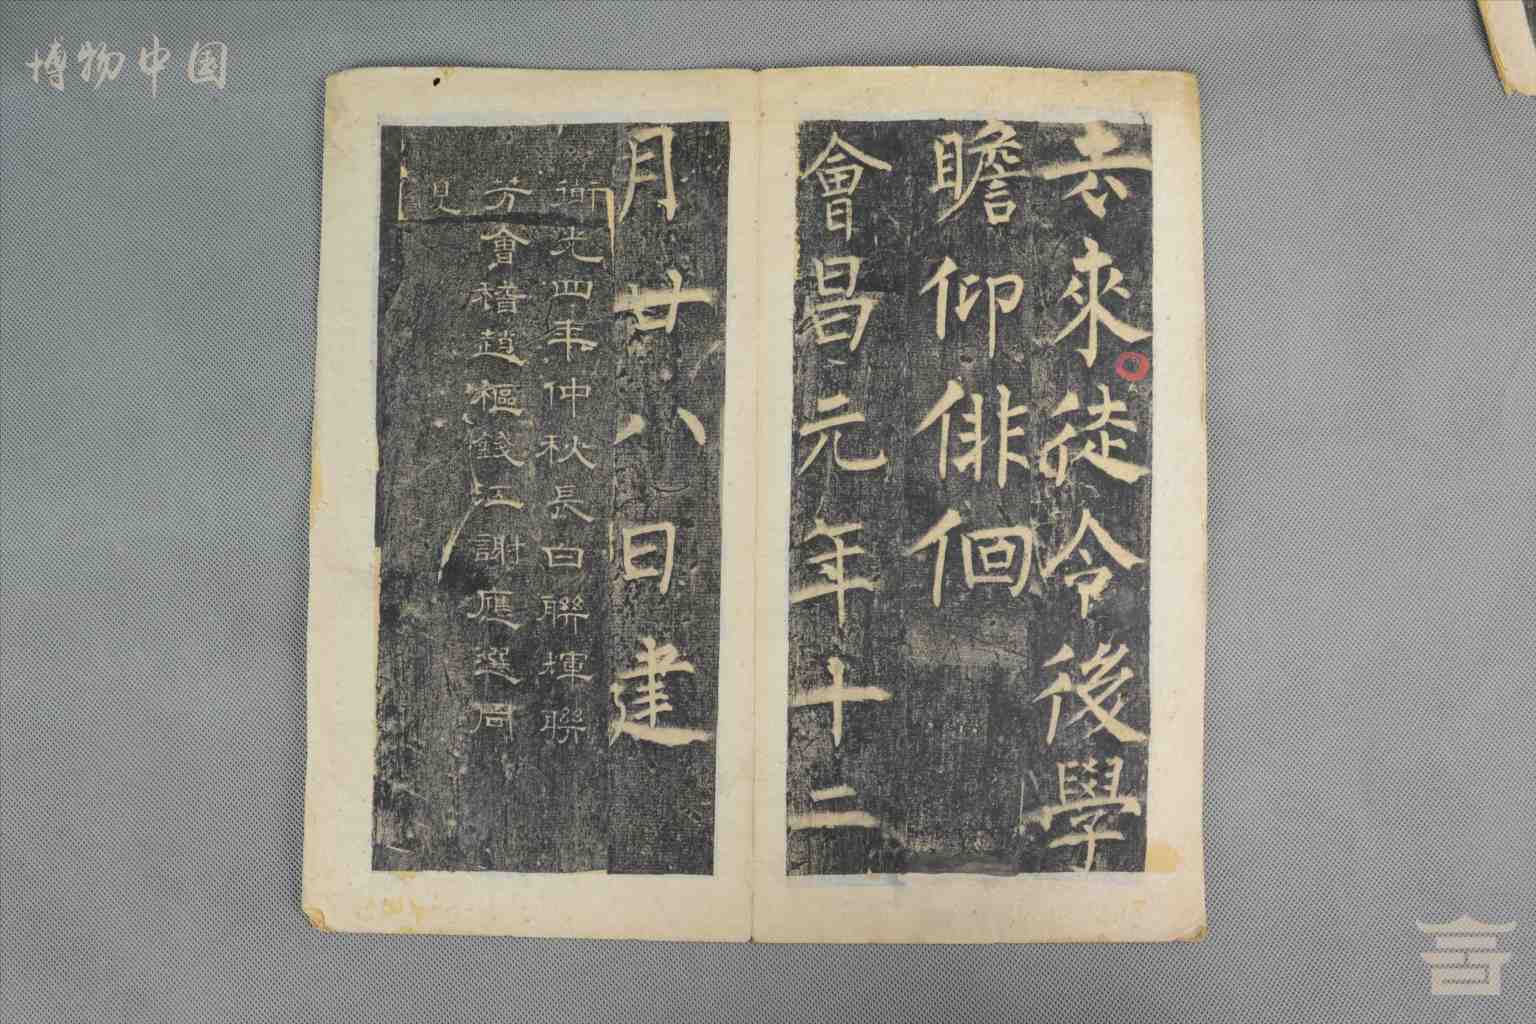 博物中国
去來徒令後學
瞻仰俳佪
會昌元年十二
月廿八日建
衜光四年仲秋長白聯揮聯
芳會稽趙樞錢江謝應選同
見